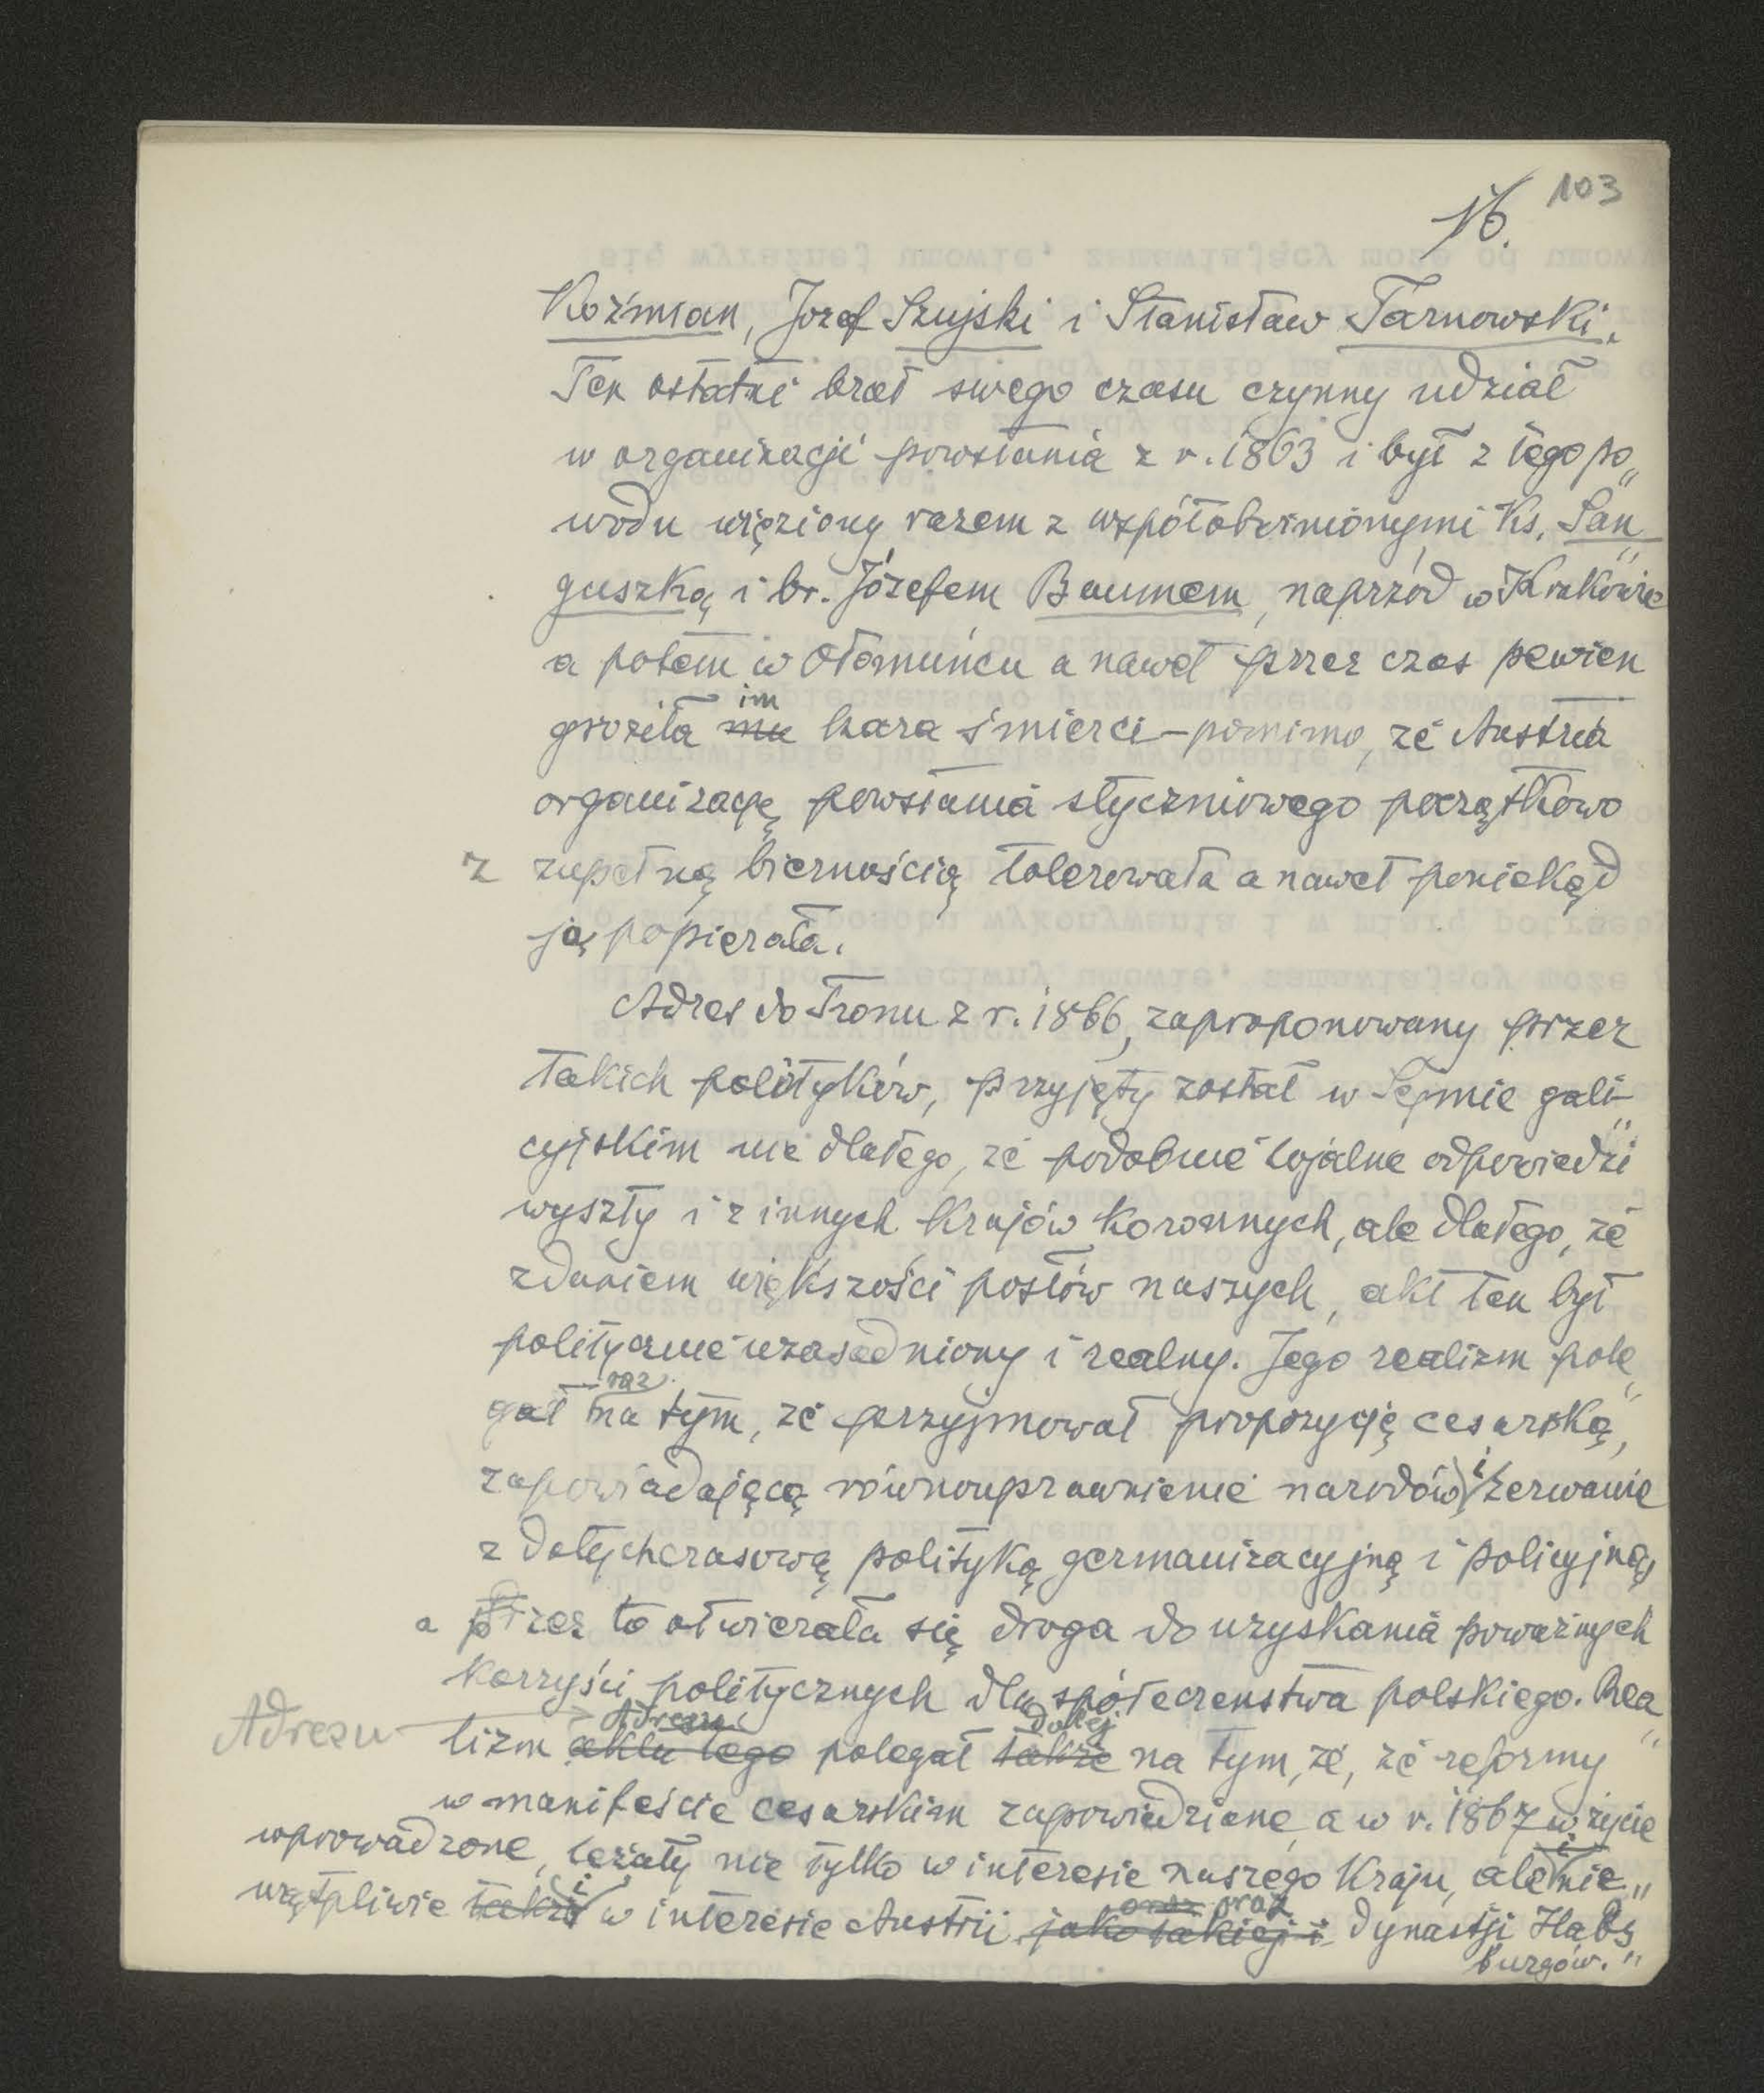 103
16.
Koźmian, Jozef Szujski i Stanisław Tarnowski.
Ten ostatni brał swego czasu czynny udział
w organizacji powstania z r. 1863 i był z tego po„
wodu więziony razem z współobwinionymi Ks. San„
guszką i br. Józefem Baumem, naprzód w Krakowie
a potem w Ołomuńcu a nawet przez czas pewien
groziła mu im kara śmierci – pomimo, że Austria
organizację powstania styczniowego początkowo
z zupełną biernością tolerowała a nawet poniekąd
ją popierała.
Adres do Tronu z r. 1866, zaproponowany przez
takich polityków, przyjęty został w Sejmie gali„
cyjskim nie dlatego, że podobnie lojalne odpowiedzi
wyszły i z innych Krajów Koronnych, ale dlatego, że
zdaniem większości posłów naszych, akt ten był
politycznie uzasadniony i realny. Jego realizm pole„
gał raz na tym, że przyjmował propozycję cesarską,
zapowiadającą równouprawnienie narodów i zerwanie
z dotychczasową polityką germanizacyjną i policyjną,
a przez to otwierała się droga do uzyskania poważnych
korzyści politycznych dla społeczeństwa polskiego. Rea„
Adresu lizm aktu tego Adresu polegał także dalej na tym, że, że reformy
w manifeście cesarskim zapowiedziane, a w r. 1867 w życie
wprowadzone, leżały nie tylko w interesie naszego Kraju, ale i nie„
wątpliwie także i w interesie Austrii jako takiej i oraz oraz dynastji Habs„
burgów.